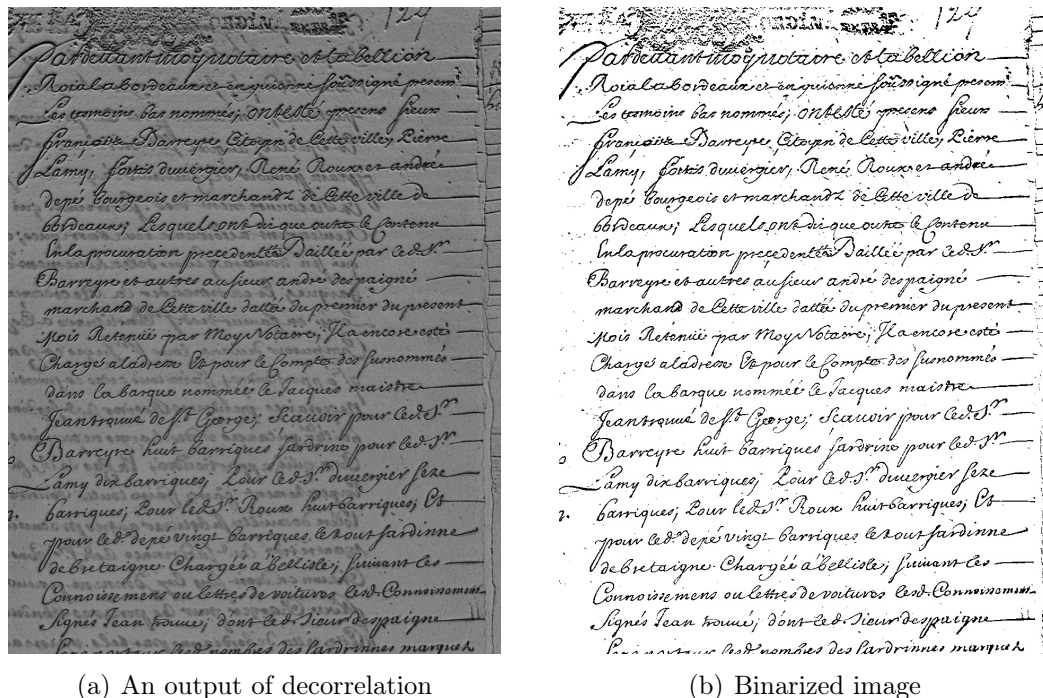 124
Pardevant moy notaire et tabellion
Roial a bordeaux et en guienne soussigné presens
Les temoins bas nommés; ont esté presens sieur
françois Barreyre, Citoyen de Cette ville, Pierre
Lamy, fortis duvergier, René Roux et andré
depé bourgeois et marchandz de Cette ville de
bordeaux; Lesquels ont dit que outre le Contenu
En la procuration precedente Daillée par led. Sr.
Barreyre et autres au sieur andré despaigné
marchand de Cette ville datté du premier du present
Mois Retenüe par Moy Notaire; Il a encore esté
Chargé a ladresse Et pour le Compte des susnommés
dans la barque nommée le Jacques maistre
Jean trouvé de St. George; Scavoir pour led. Sr.
Barreyre huit barriques sardrine pour led. Sr.
Lamy dix barriques; Pour led. Sr. duvergier seze
barriques; Pour led. Sr. Roux huit barriques; Et
pour led. depé vingt barriques le tout sardinne
de bretaigne Chargée a bellisle; suivant les
Connoissemens ou lettres de voitures lesd. Connoissemens
signés Jean trouvé; dont led. Sieur despaigne
124
Pardevant moy notaire et tabellion
Roial a bordeaux et en guienne soussigné presens
Les temoins bas nommés; ont esté presens sieur
françois Barreyre, Citoyen de Cette ville, Pierre
Lamy, fortis duvergier, René Roux et andré
depé bourgeois et marchandz de Cette ville de
bordeaux; Lesquels ont dit que outre le Contenu
En la procuration precedente Daillée par led. Sr.
Barreyre et autres au sieur andré despaigné
marchand de Cette ville datté du premier du present
Mois Retenüe par Moy Notaire; Il a encore esté
Chargé a ladresse Et pour le Compte des susnommés
dans la barque nommée le Jacques maistre
Jean trouvé de St. George; Scavoir pour led. Sr.
Barreyre huit barriques sardrine pour led. Sr.
Lamy dix barriques; Pour led. Sr. duvergier seze
barriques; Pour led. Sr. Roux huit barriques; Et
pour led. depé vingt barriques le tout sardinne
de bretaigne Chargée a bellisle; suivant les
Connoissemens ou lettres de voitures lesd. Connoissemens
signés Jean trouvé; dont led. Sieur despaigne
(a) An output of decorrelation
(b) Binarized image